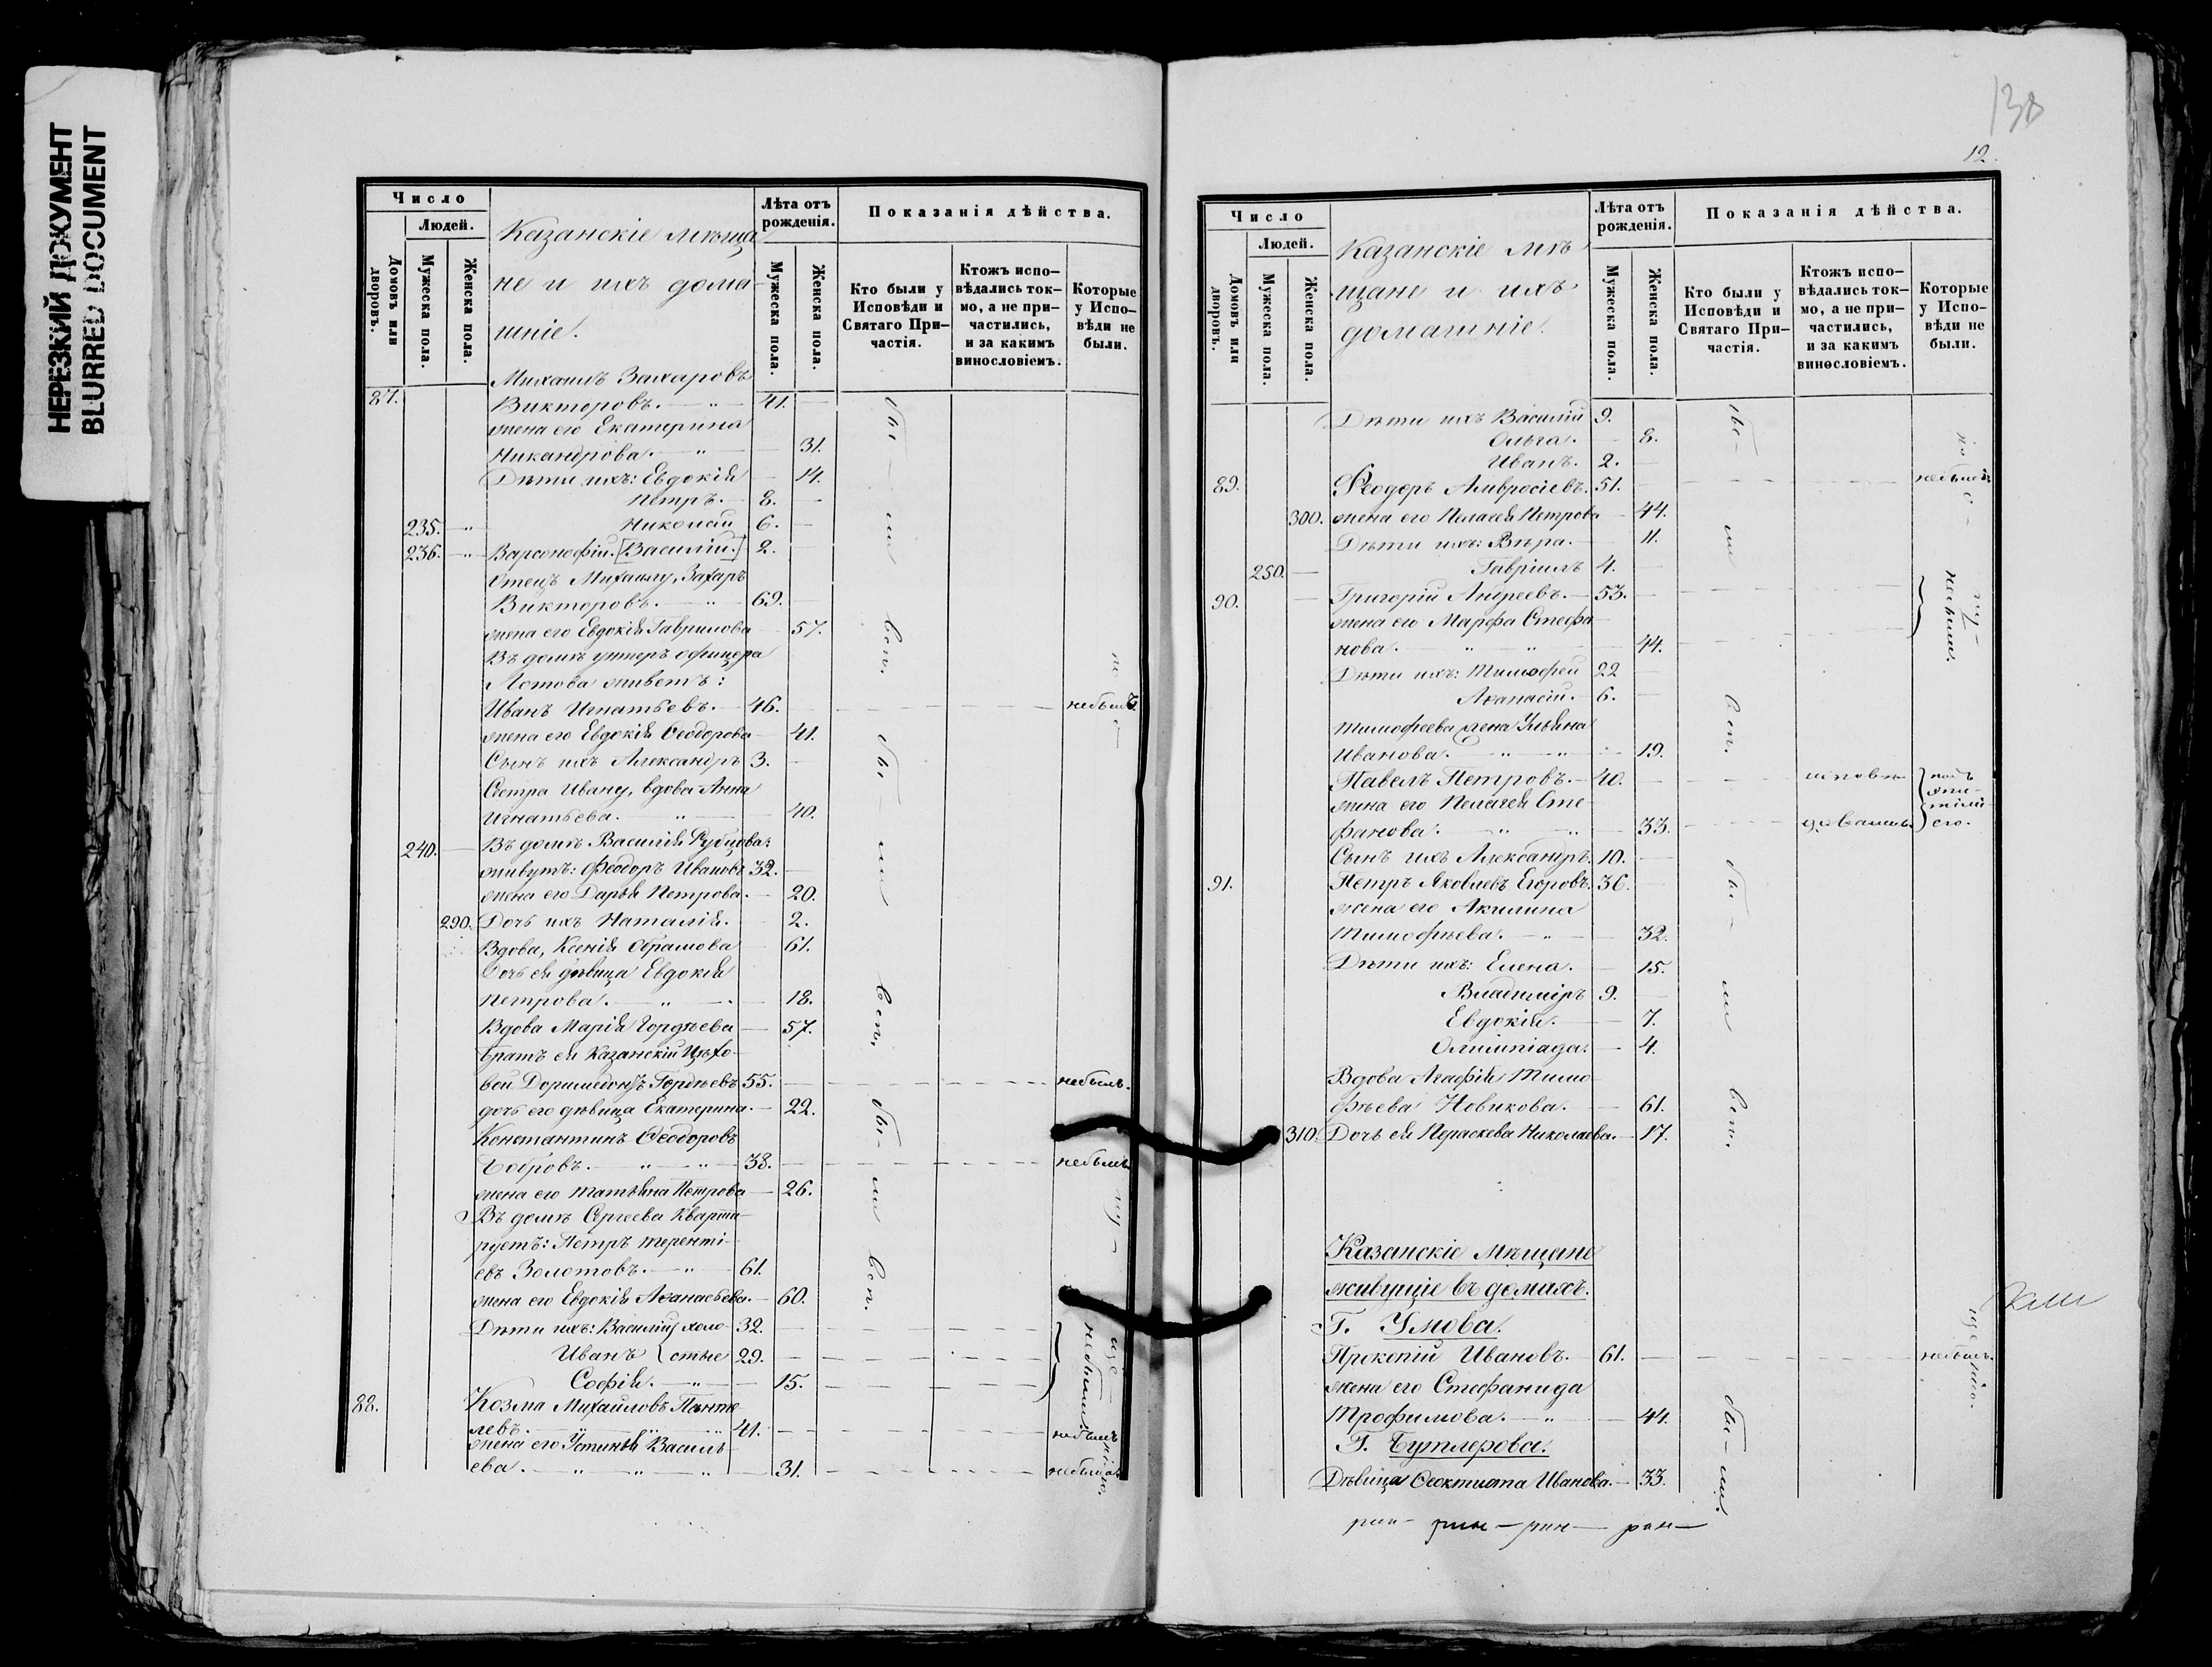 НЕРЕЗКИЙ ДОКУМЕНТ
BLURRED DOCUMENT
Число
Людей.
Домовъ или дворовъ.
Мужеска пола.
Женска пола.
Казанскіе мѣща
не и ихъ дома
шніе.
Лѣта отъ рожденія.
Мужеска пола.
Женска пола.
Показанія дѣйства.
Кто были у Исповѣди и Святаго При-частія.
Ктожъ испо-вѣдались ток-мо, а не при-частились, и за какимъ винословіемъ.
Которые у Испо-вѣди не были.
Михаилъ Захаровъ
87. Викторовъ. — " — 41. —
жена его Екатерина
Никандрова. — " — 31.
Дѣти ихъ: Евдокія — 14.
Петръ. — 8. —
235. — " Николай 6. —
236. — " Варсонофій. [Василій.] 2. —
Отецъ Михаилу, Захаръ
Викторовъ. — " — 69. —
жена его Евдокія Гаврилова — 57.
Въ домѣ унтеръ офицера
Лотова живетъ:
Иванъ Игнатьевъ. — 46. — небылъ.
жена его Евдокія Ѳеодорова — 41.
Сынъ ихъ Александръ 3. —
Сестра Ивану, вдова Анна
Игнатьева. — " — 40.
240. — Въ домѣ Василія Рубцова:
живутъ: Феодоръ Ивановъ 32. —
жена его Дарья Петрова. — 20.
290. Дочь ихъ Наталія. — 2.
Вдова, Ксенія Абрамова — 61.
Дочь ея дѣвица Евдокія
Петрова. — " — 18.
Вдова Марія Гордѣева — 57.
Братъ ея Казанскій Цѣхо-
вой Доримедонтъ Гордѣевъ 55. — небылъ.
дочь его дѣвица Екатерина. — 22.
Константинъ Ѳеодоровъ
Бобровъ. — " — " — 38. — небылъ.
жена его Татьяна Петрова — 26.
Въ домѣ Сергеева Кварти-
руетъ: Петръ Теренті-
евъ Золотовъ. — " — 61.
жена его Евдокія Аѳанасьева. — 60.
Дѣти ихъ: Василій } холо- 32. —
Иванъ } стые 29. — небыли.
Софія. — " — 15. —
88. Козма Михайловъ Панте
левъ. — " — " — " 41. — небылъ
жена его Устинья Василь-
ева. — " — " — " — 31. — небыла.
бы — ли въ п.
бы — ли въ п.
бы — ли въ п.
138
12.
Число
Людей.
Домовъ или дворовъ.
Мужеска пола.
Женска пола.
Казанскіе мѣ
щане и ихъ
домашніе.
Лѣта отъ рожденія.
Мужеска пола.
Женска пола.
Показанія дѣйства.
Кто были у Исповѣди и Святаго При-частія.
Ктожъ испо-вѣдались ток-мо, а не при-частились, и за какимъ винословіемъ.
Которые у Испо-вѣди не были.
Дѣти ихъ Василій 9.
Ольга. — 8.
Иванъ. 2. —
89. Ѳеодоръ Амвросіевъ. 51. — небылъ.
300. жена его Пелагея Петрова — 44.
Дѣти ихъ: Вѣра. — 11.
250. — Гавріилъ 4. —
90. — Григорій Андреевъ. — 53. —
жена его Марфа Стефа небыли.
нова. " " — 44.
Дѣти ихъ: Тимофей 22 —
Аѳанасій. — 6. —
Тимофеева жена Ульяна
Иванова. — " — " — 19.
Павелъ Петровъ. — 40. — исповѣ
жена его Пелагея Сте
фанова. — " — " — 33. — довались.
Сынъ ихъ Александръ. 10. —
91. Петръ Яковлевъ Егоровъ. 36. —
жена его Акилина
Тимофѣева. — " — 32.
Дѣти ихъ: Елена. — 15.
Владиміръ 9. —
Евдокія. — 7.
Олимпіада. — 4.
Вдова Агафія Тимо
фѣева Новикова. — 61.
310. Дочь ея Параскева Николаева. — 17.
бы — ли въ п.
бы — ли въ п.
Казанскіе мѣщане
живущіе въ домахъ.
Г. Умова.
Прокопій Ивановъ. 61. — небылъ.
жена его Стефанида
Трофимова. — " — 44.
Г. Бутлерова.
Дѣвица Ѳеоктиста Иванова. — 33.
бы — ли.